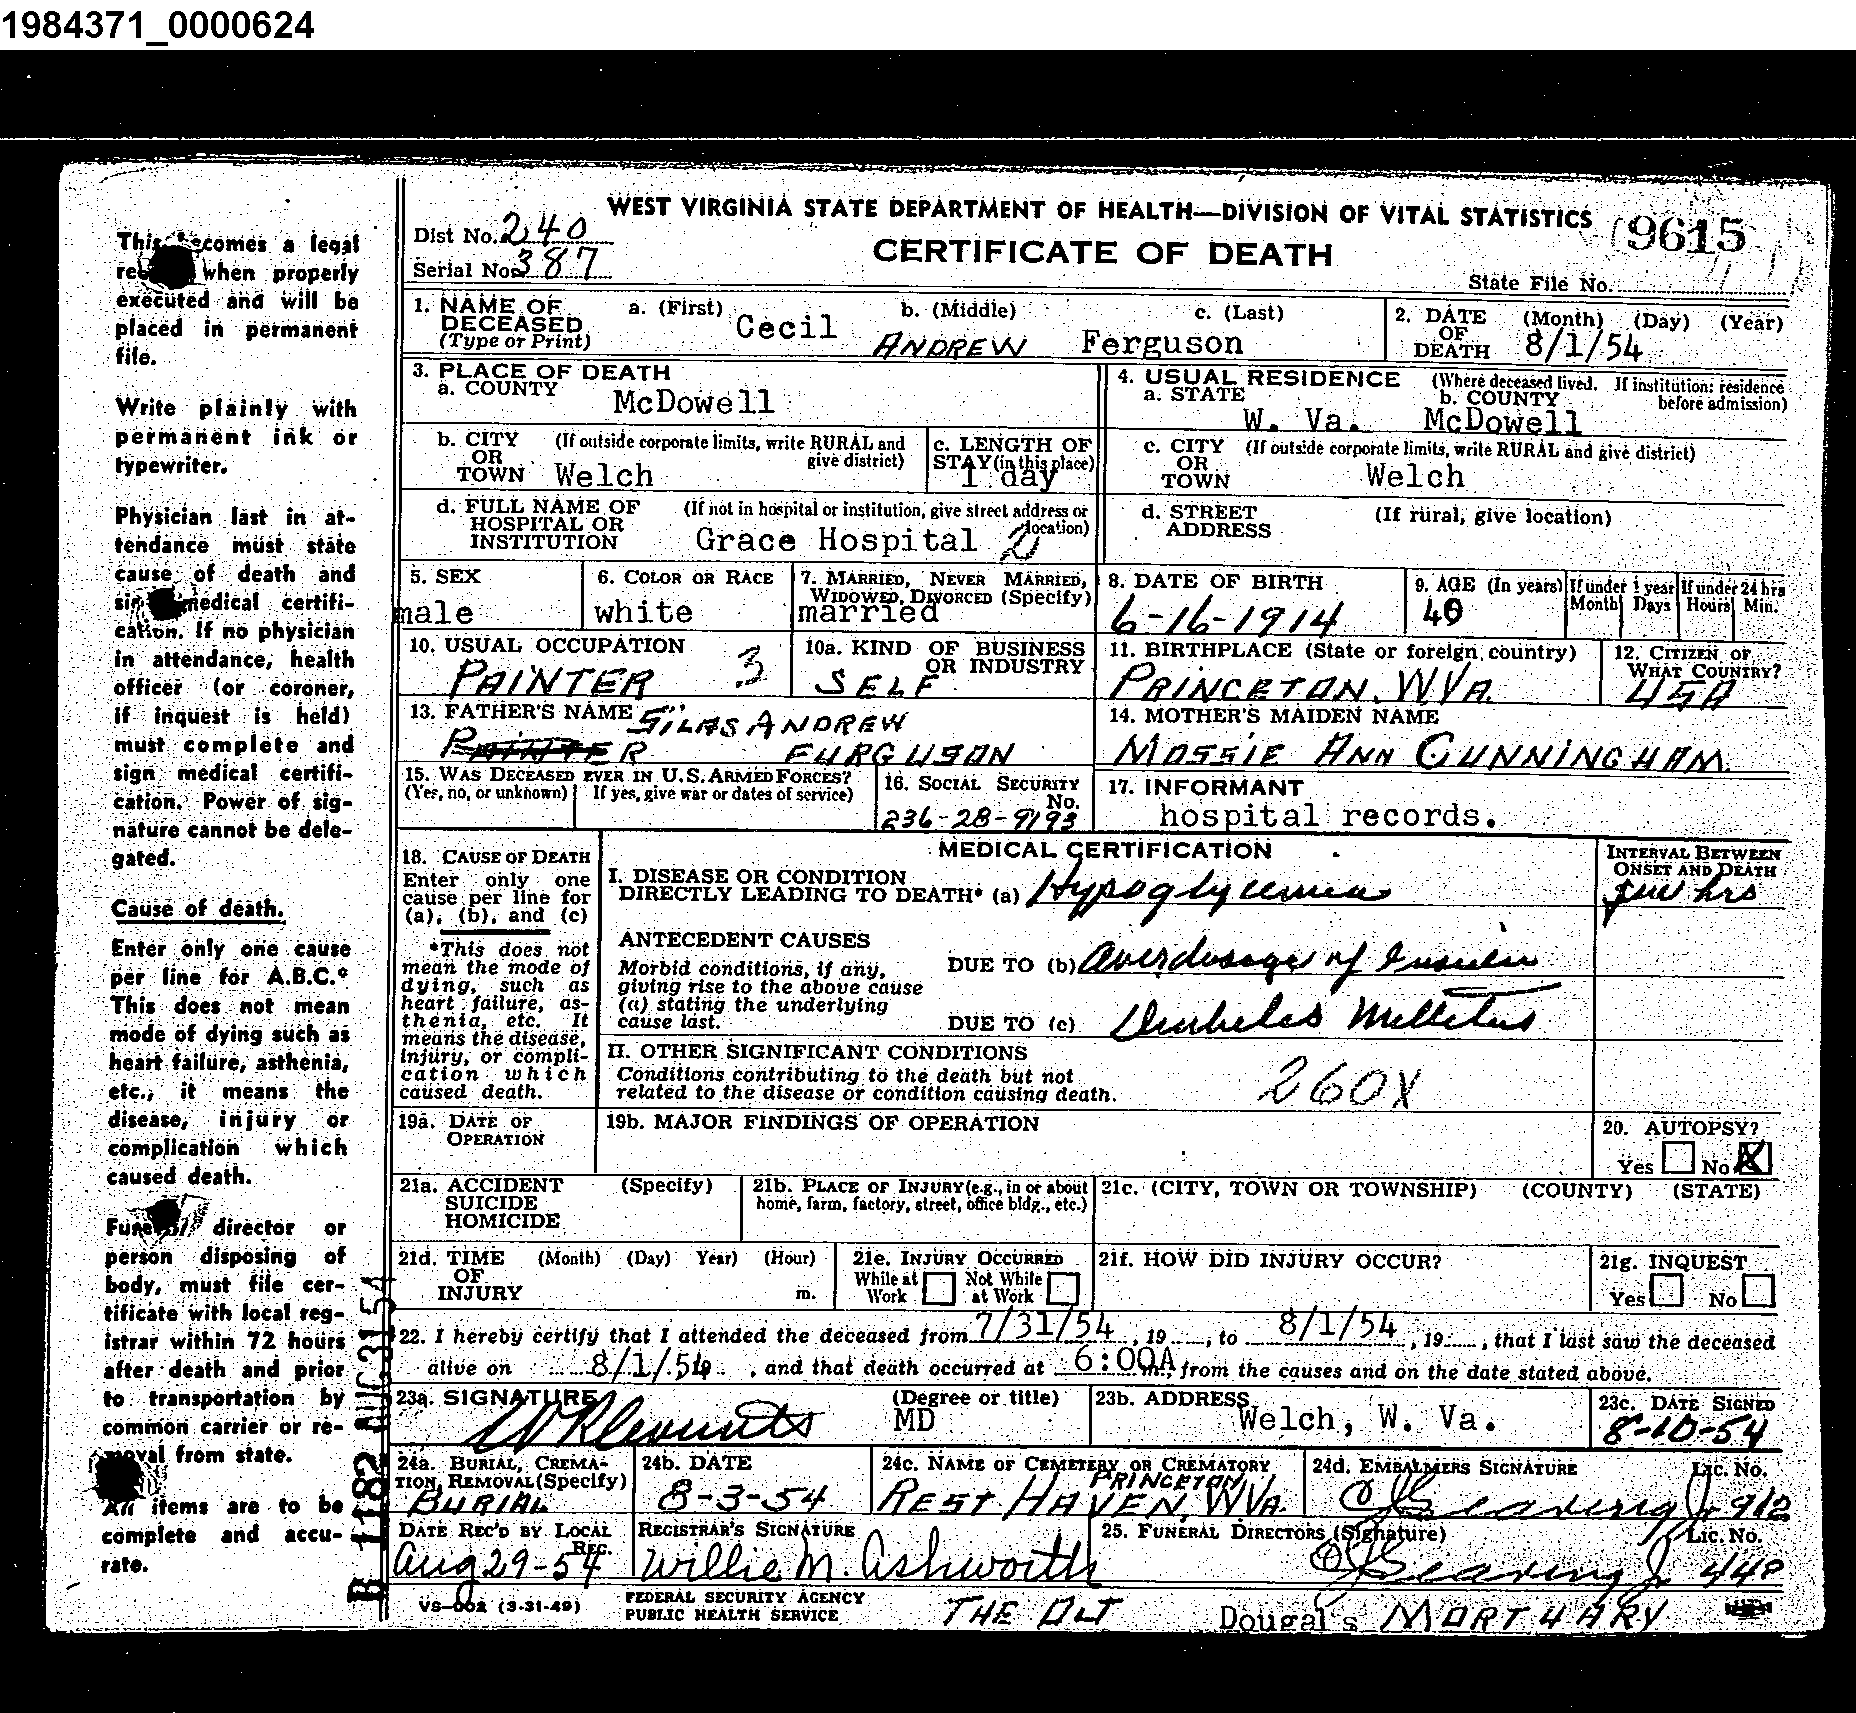 1984371_0000624
WEST VIRGINIA STATE DEPARTMENT OF HEALTH—DIVISION OF VITAL STATISTICS
CERTIFICATE OF DEATH
9615
State File No.
Dist No. 240
Serial No. 387
This becomes a legal
when properly
executed and will be
placed in permanent
file.
Write plainly with
permanent ink or
typewriter.
Physician last in at-
tendance must state
cause of death and
medical certifi-
cation. If no physician
in attendance, health
officer (or coroner,
if inquest is held)
must complete and
sign medical certifi-
cation. Power of sig-
nature cannot be dele-
gated.
Cause of death.
Enter only one cause
per line for A.B.C.*
This does not mean
mode of dying such as
heart failure, asthenia,
etc., it means the
disease, injury or
complication which
caused death.
Funeral director or
person disposing of
body, must file cer-
tificate with local reg-
istrar within 72 hours
after death and prior
to transportation by
common carrier or re-
moval from state.
All items are to be
complete and accu-
rate.
1. NAME OF DECEASED (Type or Print) a. (First) Cecil b. (Middle) ANDREW c. (Last) Ferguson
2. DATE OF DEATH (Month) (Day) (Year) 8/1/54
3. PLACE OF DEATH
a. COUNTY McDowell
4. USUAL RESIDENCE (Where deceased lived. If institution: residence before admission)
a. STATE W. Va. b. COUNTY McDowell
b. CITY OR TOWN (If outside corporate limits, write RURAL and give district) Welch
c. LENGTH OF STAY (in this place) 1 day
c. CITY OR TOWN (If outside corporate limits, write RURAL and give district) Welch
d. FULL NAME OF HOSPITAL OR INSTITUTION (If not in hospital or institution, give street address or location) Grace Hospital 2
d. STREET ADDRESS (If rural, give location)
5. SEX male
6. COLOR OR RACE white
7. MARRIED, NEVER MARRIED, WIDOWED, DIVORCED (Specify) married
8. DATE OF BIRTH 6-16-1914
9. AGE (In years) 40 If under 1 year Months Days If under 24 hrs Hours Min.
10. USUAL OCCUPATION PAINTER 3
10a. KIND OF BUSINESS OR INDUSTRY SELF
11. BIRTHPLACE (State or foreign country) PRINCETON, WVA.
12. CITIZEN OF WHAT COUNTRY? USA
13. FATHER'S NAME SILAS ANDREW
FURGUSON
14. MOTHER'S MAIDEN NAME MOSSIE ANN CUNNINGHAM
15. WAS DECEASED EVER IN U.S. ARMED FORCES?
(Yes, no, or unknown) If yes, give war or dates of service)
16. SOCIAL SECURITY No. 236-28-9193
17. INFORMANT hospital records.
MEDICAL CERTIFICATION
INTERVAL BETWEEN ONSET AND DEATH
18. CAUSE OF DEATH
Enter only one cause per line for (a), (b), and (c)
*This does not mean the mode of dying, such as heart failure, asthenia, etc. It means the disease, injury, or complication which caused death.
I. DISEASE OR CONDITION DIRECTLY LEADING TO DEATH* (a) Hypoglycemia few hrs
ANTECEDENT CAUSES
Morbid conditions, if any, giving rise to the above cause (a) stating the underlying cause last.
DUE TO (b) Overdosage of Insulin
DUE TO (c) Diabetes Mellitus
II. OTHER SIGNIFICANT CONDITIONS
Conditions contributing to the death but not related to the disease or condition causing death.
260X
19a. DATE OF OPERATION
19b. MAJOR FINDINGS OF OPERATION
20. AUTOPSY? Yes No X
21a. ACCIDENT SUICIDE HOMICIDE (Specify)
21b. PLACE OF INJURY (e.g., in or about home, farm, factory, street, office bldg., etc.)
21c. (CITY, TOWN OR TOWNSHIP) (COUNTY) (STATE)
21d. TIME OF INJURY (Month) (Day) Year) (Hour) m.
21e. INJURY OCCURRED While at Work Not While at Work
21f. HOW DID INJURY OCCUR?
21g. INQUEST Yes No
22. I hereby certify that I attended the deceased from 7/31/54, 19, to 8/1/54, 19, that I last saw the deceased
alive on 8/1/54, and that death occurred at 6:00A m., from the causes and on the date stated above.
23a. SIGNATURE (Degree or title) MD
23b. ADDRESS Welch, W. Va.
23c. DATE SIGNED 8-10-54
24a. BURIAL, CREMATION, REMOVAL (Specify) BURIAL
24b. DATE 8-3-54
24c. NAME OF CEMETERY OR CREMATORY REST HAVEN, PRINCETON, WVA.
24d. EMBALMERS SIGNATURE Lic. No. 912
DATE REC'D BY LOCAL REG. Aug 29-54
REGISTRAR'S SIGNATURE Willie M. Ashworth
25. FUNERAL DIRECTORS (Signature) Lic. No. 448
VS-002 (3-31-49)
FEDERAL SECURITY AGENCY
PUBLIC HEALTH SERVICE
THE
Dougal's MORTUARY
B 1182 AUG 31 54